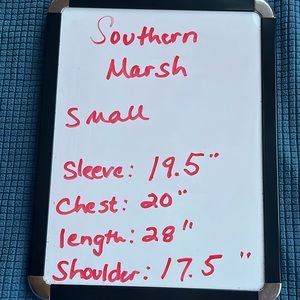 Southern
Marsh
Small
Sleeve: 19.5"
Chest: 20"
length: 28"
Shoulder: 17.5"